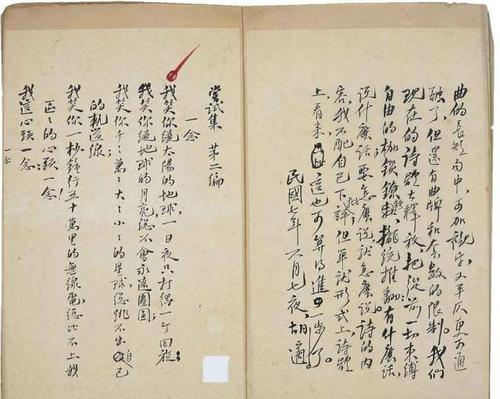 曲的長短句中,可加襯字,又平仄更可通
融了,但還有曲牌和套數的限制。我們
現在的詩體大釋放把從前一切束縛
自由的枷鎖鐐銬攏統推翻有什麼話
說什麼話要怎麼說就怎麼說詩的內
容我不配自己下評但單就形式上詩體
上看來這也可算得進一步了。
民國七年六月七夜,胡適
嘗試集 第二編
一念
我笑你繞太陽的地球一日夜只打得一个回旋;
我笑你繞地球的月兒總不會永遠團圓;
我笑你千〻萬〻大〻小〻的星球總跳不出自己
的軌道線;
我笑你一秒鐘行五十萬里的無線電總比不上我
區〻的心頭一念!
我這心頭一念:
一念